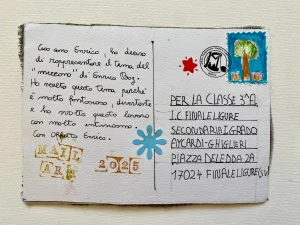 Ciao sono Enrico, ho deciso
di rappresentare il tema del
"mucccoso" di Enrico Baj.
Ho scelto questo tema perché
è molto fantasioso, divertente
e ho svolto questo lavoro
con molto entusiasmo.
Con affetto Enrico.
MAIL
ART 2025
PER LA CLASSE 3ªA
I.C FINALE LIGURE
SECONDARIA I GRADO
AYCARDI-GHIGLIERI
PIAZZA DELEDDA 2A
17024 FINALE LIGURE (SV)